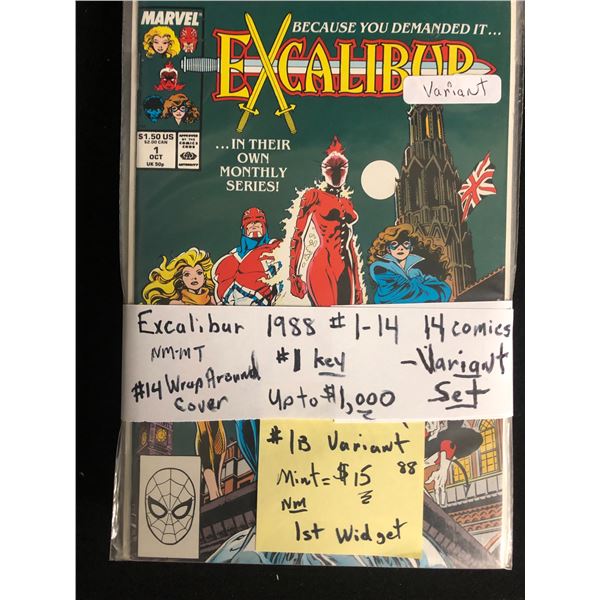 MARVEL
BECAUSE YOU DEMANDED IT...
EXCALIBUR
Variant
$1.50 US
$2.00 CAN
1
OCT
UK 50p
APPROVED
BY THE
COMICS
CODE
AUTHORITY
...IN THEIR
OWN
MONTHLY
SERIES!
Excalibur 1988 #1-14 14 comics
NM-MT #1 key -Variant
#14 Wrap Around Up to $1,000 Set
Cover
#1B Variant
88
Mint = $15
NM
1st Widget